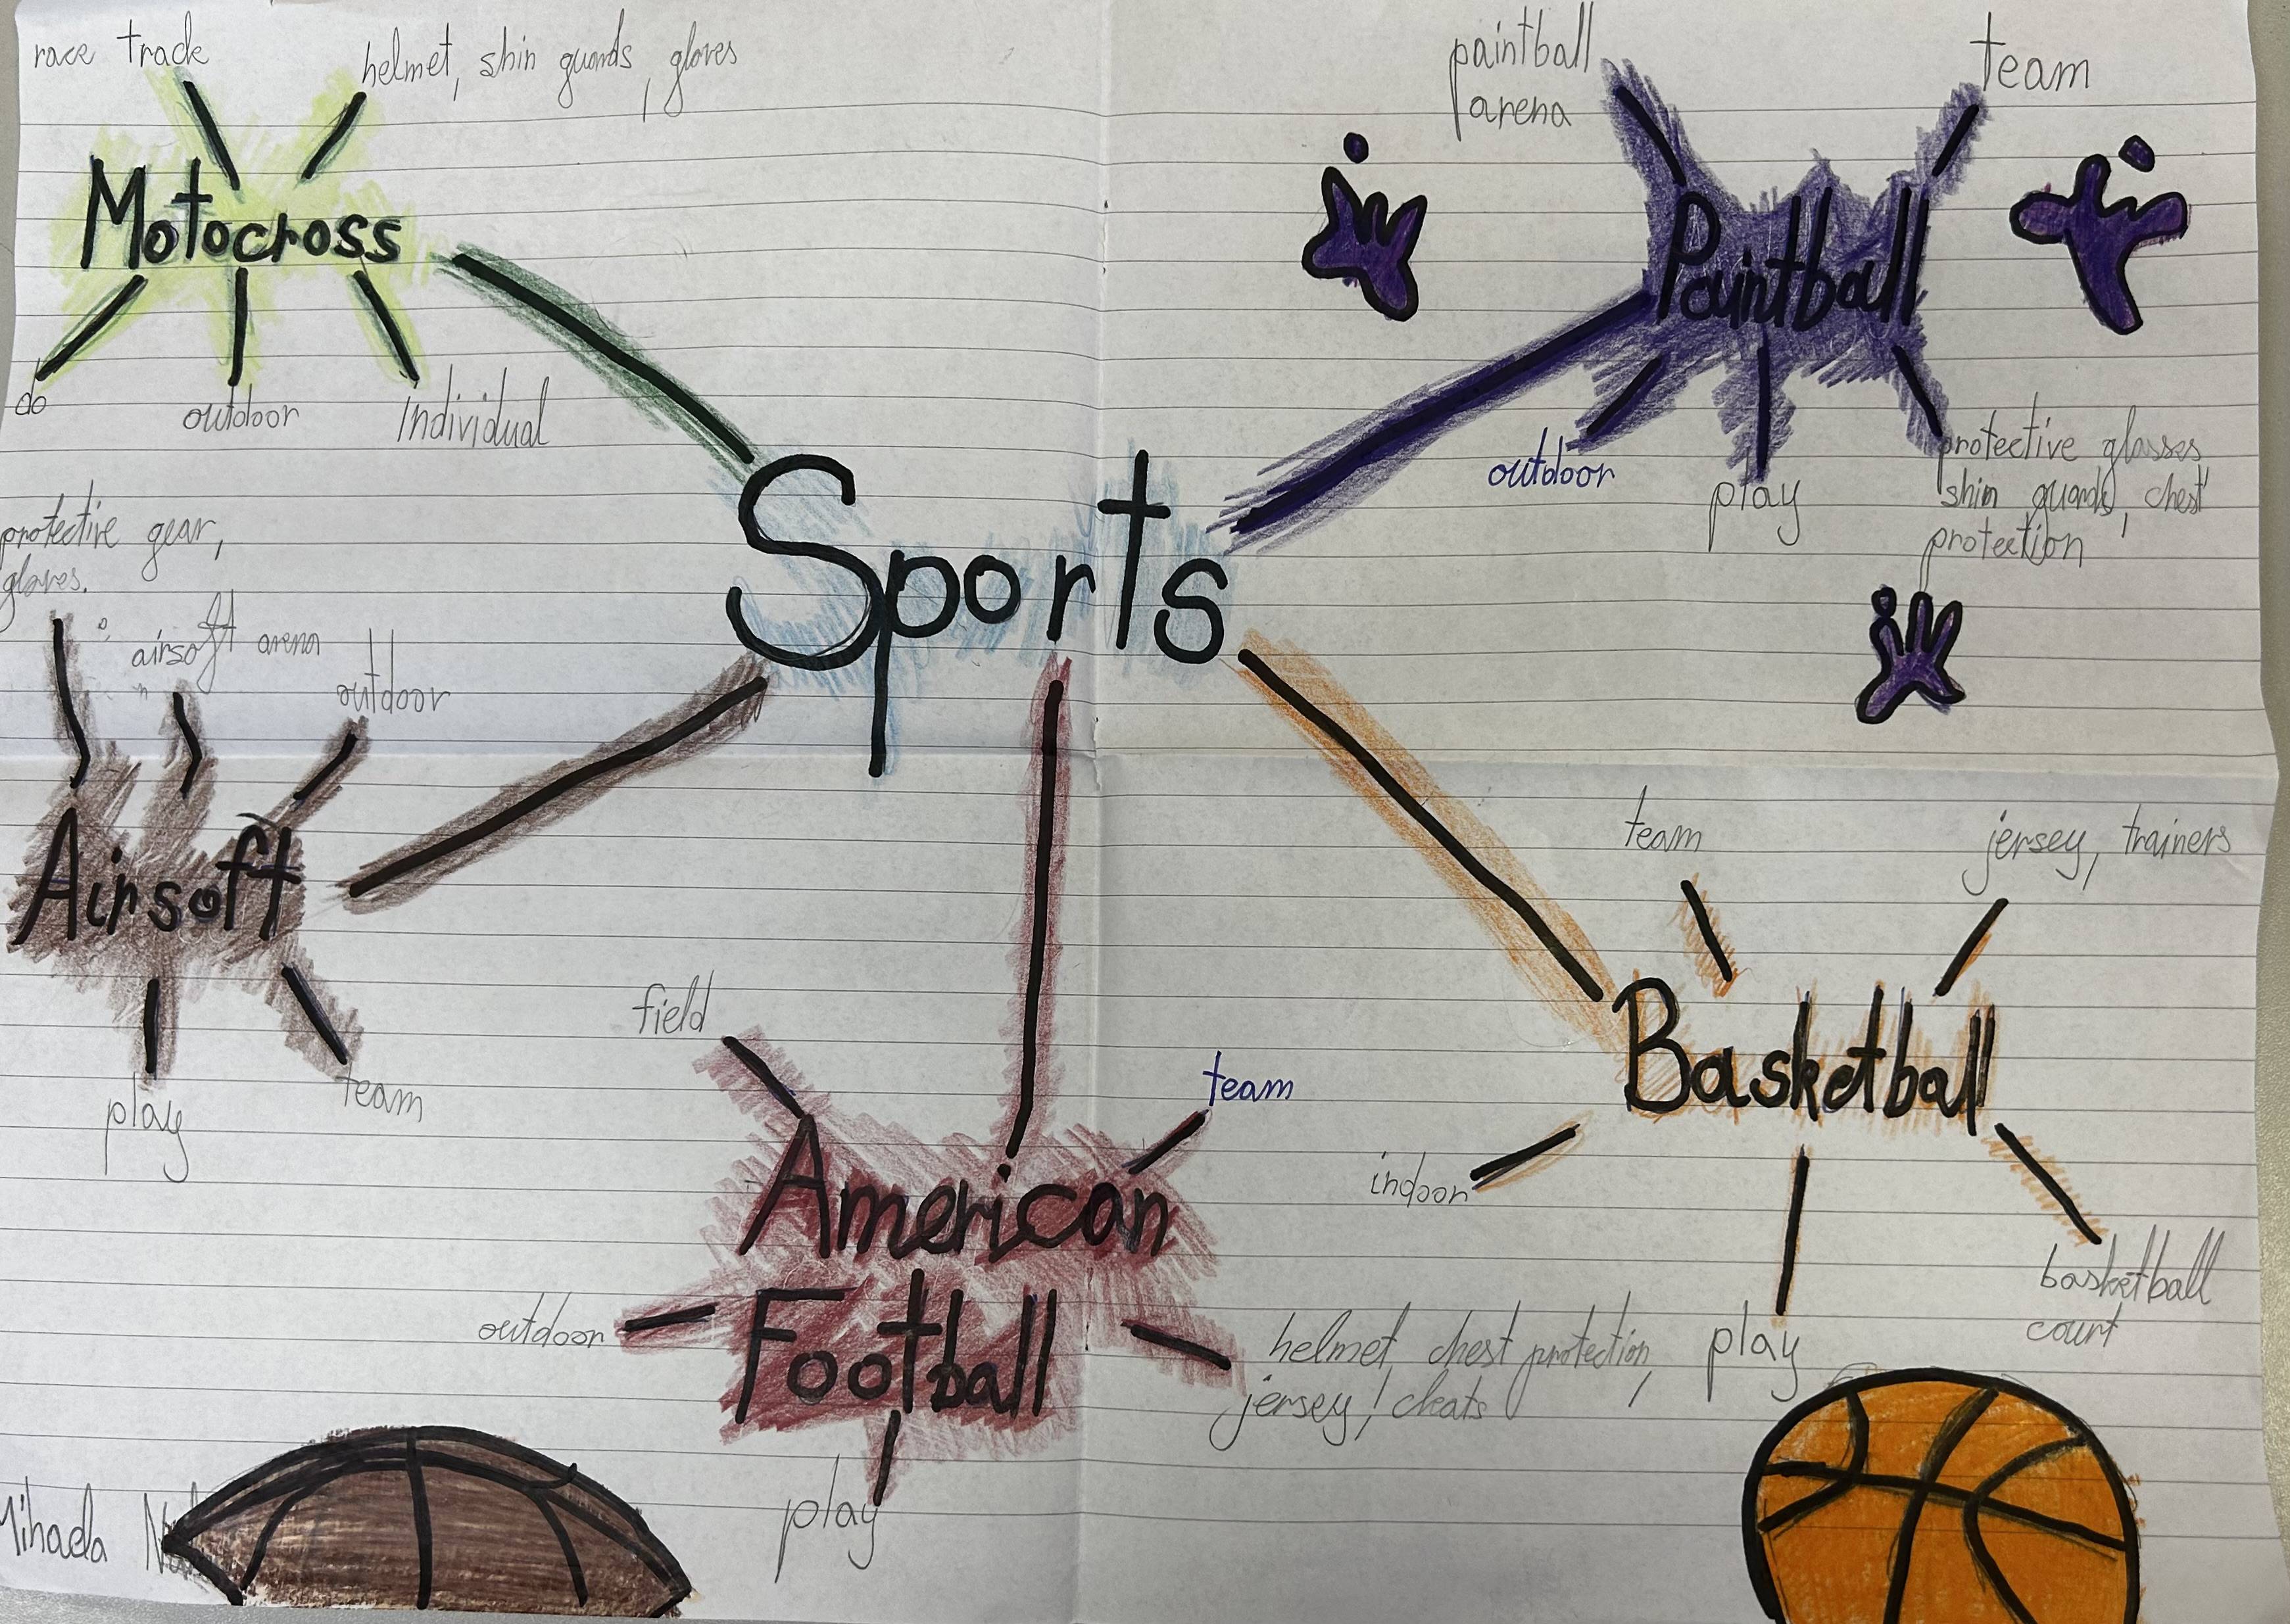 race track
helmet, shin guards, gloves
Motocross
do
outdoor
Individual
paintball
arena
team
Paintball
outdoor
play
protective glasses
shin guards, chest
protection
Sports
protective gear,
gloves.
airsoft arena
outdoor
Airsoft
play
team
field
team
American
Football
outdoor
helmet, chest protection,
jersey, cleats
play
team
jersey, trainers
Basketball
indoor
play
basketball
court